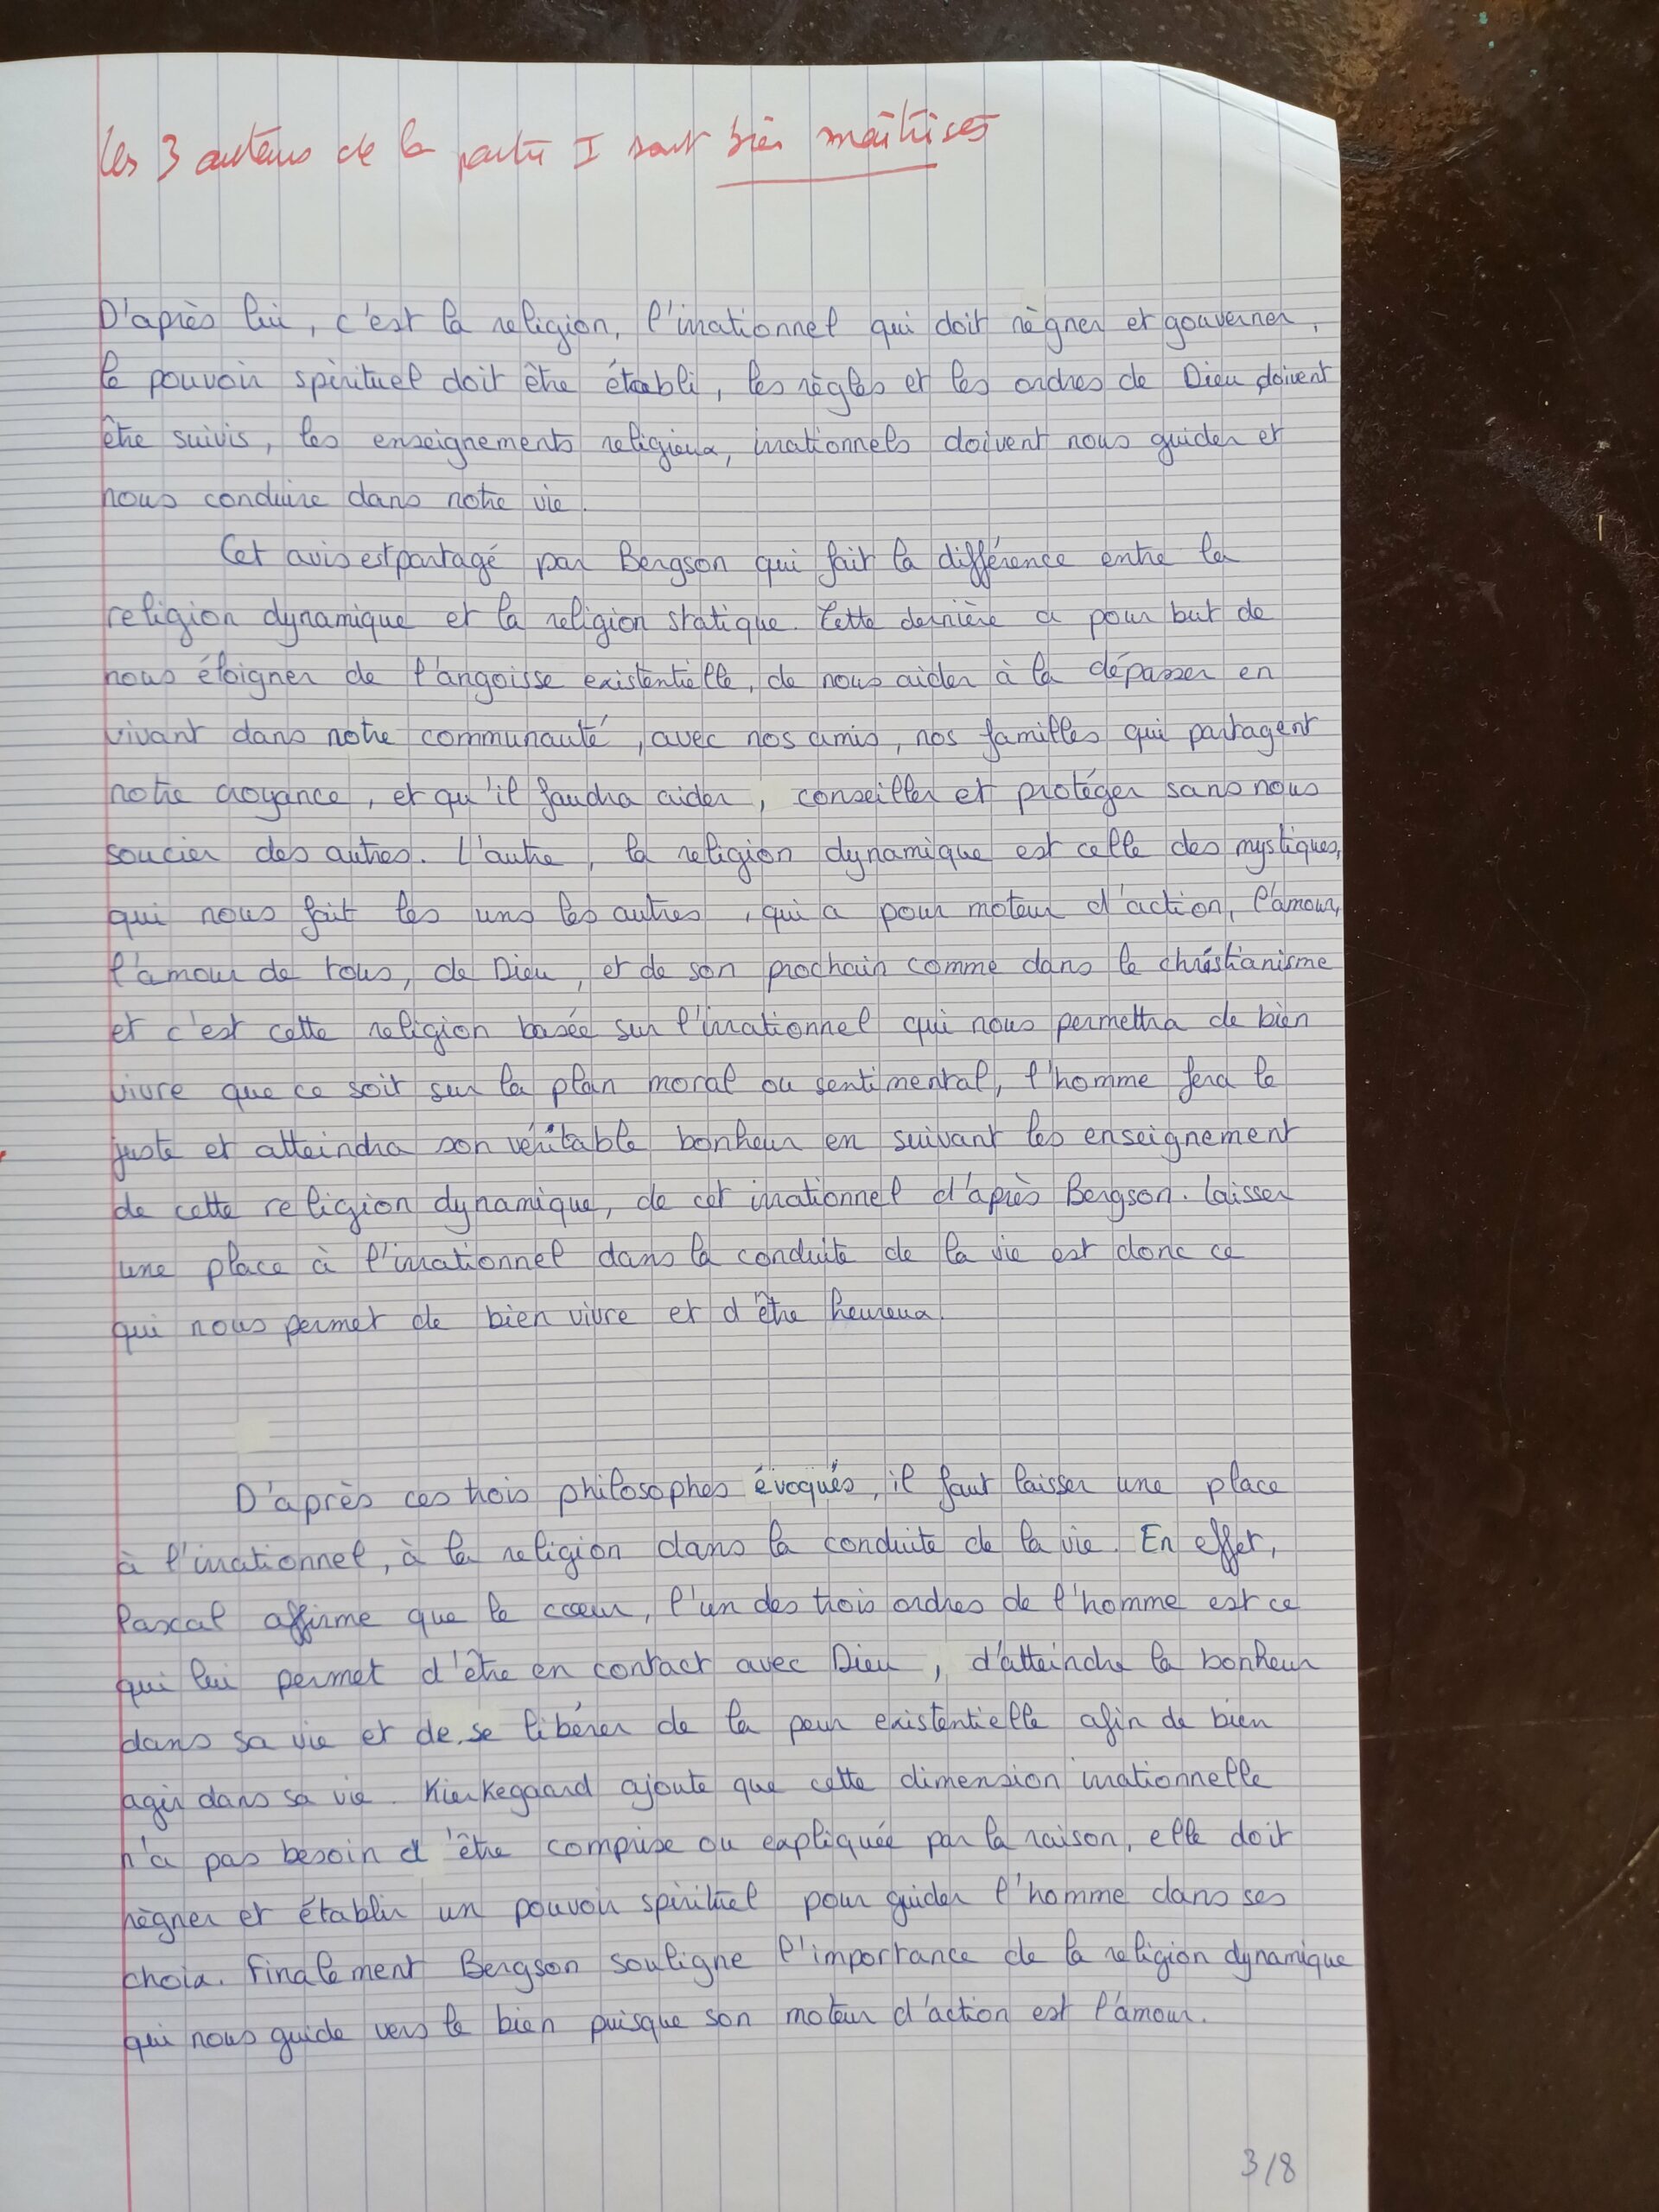 les 3 auteurs de la partie I sont bien maîtrisés
D'après lui, c'est la religion, l'irrationnel qui doit règner et gouverner,
le pouvoir spirituel doit être établi, les règles et les ordres de Dieu doivent
être suivis, les enseignements religieux, irrationnels doivent nous guider et
nous conduire dans notre vie.
Cet avis est partagé par Bergson qui fait la différence entre la
religion dynamique et la religion statique. Cette dernière a pour but de
nous éloigner de l'angoisse existentielle, de nous aider à la dépasser en
vivant dans notre communauté, avec nos amis, nos familles qui partagent
notre croyance, et qu'il faudra aider, conseiller et protéger sans nous
soucier des autres. L'autre, la religion dynamique est celle des mystiques,
qui nous fait les uns les autres, qui a pour moteur d'action, l'amour,
l'amour de tous, de Dieu, et de son prochain comme dans le christianisme
et c'est cette religion basée sur l'irrationnel qui nous permettra de bien
vivre que ce soit sur le plan moral ou sentimental, l'homme fera le
juste et atteindra son véritable bonheur en suivant les enseignement
de cette religion dynamique, de cet irrationnel d'après Bergson. Laisser
une place à l'irrationnel dans la conduite de la vie est donc ce
qui nous permet de bien vivre et d'être heureux.
D'après ces trois philosophes évoqués, il faut laisser une place
à l'irrationnel, à la religion dans la conduite de la vie. En effet,
Pascal affirme que le cœur, l'un des trois ordres de l'homme est ce
qui lui permet d'être en contact avec Dieu, d'atteindre le bonheur
dans sa vie et de se libérer de la peur existentielle afin de bien
agir dans sa vie. Kierkegaard ajoute que cette dimension irrationnelle
n'a pas besoin d'être comprise ou expliquée par la raison, elle doit
règner et établir un pouvoir spirituel pour guider l'homme dans ses
choix. Finalement Bergson souligne l'importance de la religion dynamique
qui nous guide vers le bien puisque son moteur d'action est l'amour.
3/8